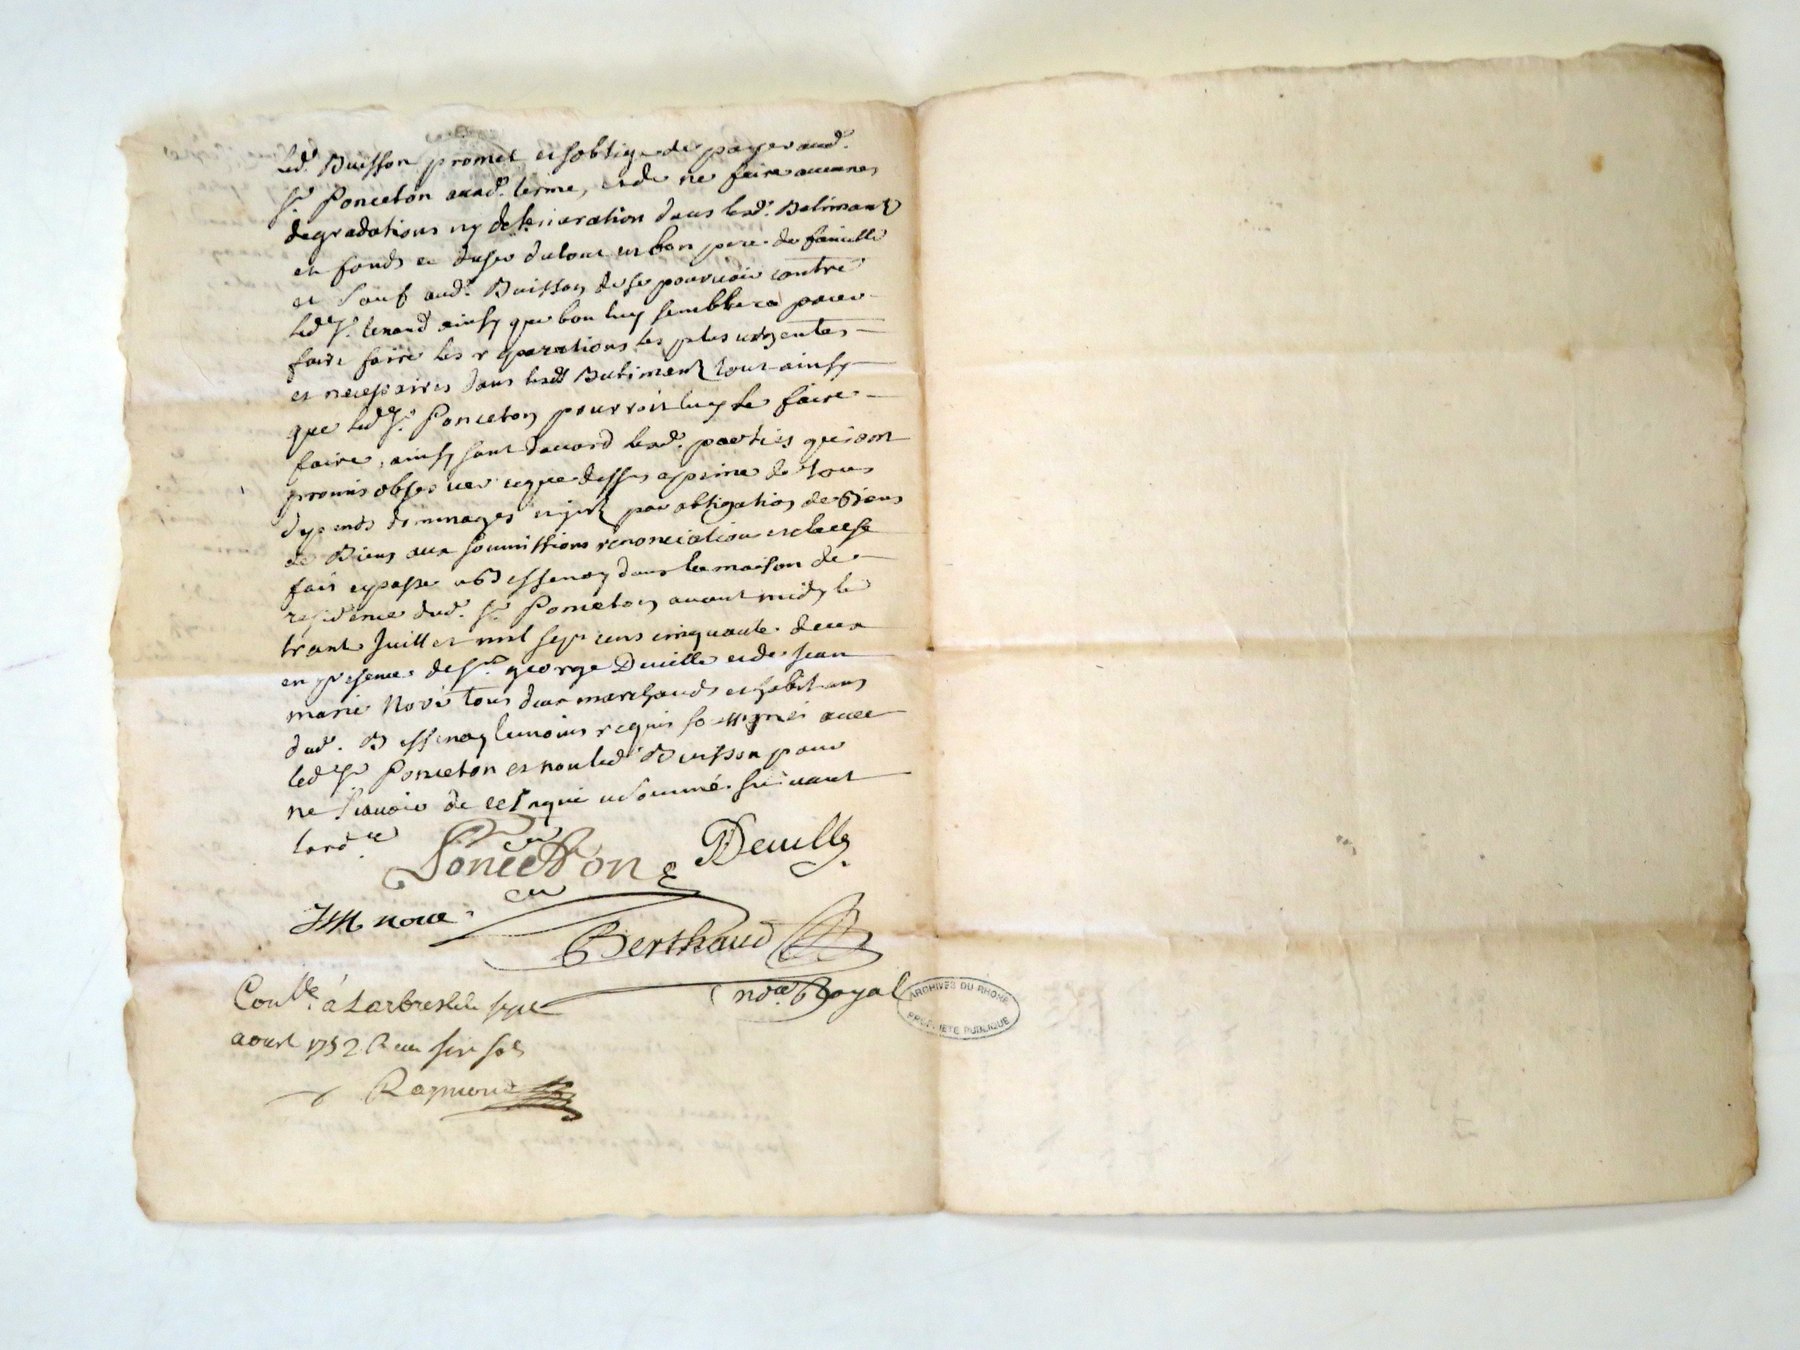 led. Buisson promet et soblige de payer aud.
Sr. Ponceton auxd. terme, et de ne faire aucunes
degradations ny deterioration dans lesd. Batimant
et fonds et duser dutout en bon pere de famille
et Sauf aud. Buisson de se pourvoir contre
led. Sr. ainsy que bon luy semblera pour
faire faire les reparations les plus urgentes
et necessaires dans lesd. Batiment tout ainsy
que led. Sr. Ponceton pourroit luy le faire
faire, ainsy sont daccord lesd. parties qui ont
promis observer ce que dessus a peine de tous
depends dommages par obligation de Biens
de Biens aux soumissions renonciation et clause
fait et passe a Bessenay dans la maison de
residence dud. Sr. Ponceton avant midy le
trante Juillet mil sept cens cinquante deux
en presence de Sr. george Deville et de Jean
marie Nové tous deux marchands et habitans
dud. Bessenay temoins requis soussignés avec
led. Sr. Ponceton et non led. Buisson pour
ne Scavoir de ce Enquis et sommé suivant
lord.ce
Ponceton Deville
JM nove
Berthaud
no.re Royal
Con.lle á Larbresle le sept
aoust 1752 Recu six sols
Raymond
ARCHIVES DU RHONE
PROPRIETE PUBLIQUE